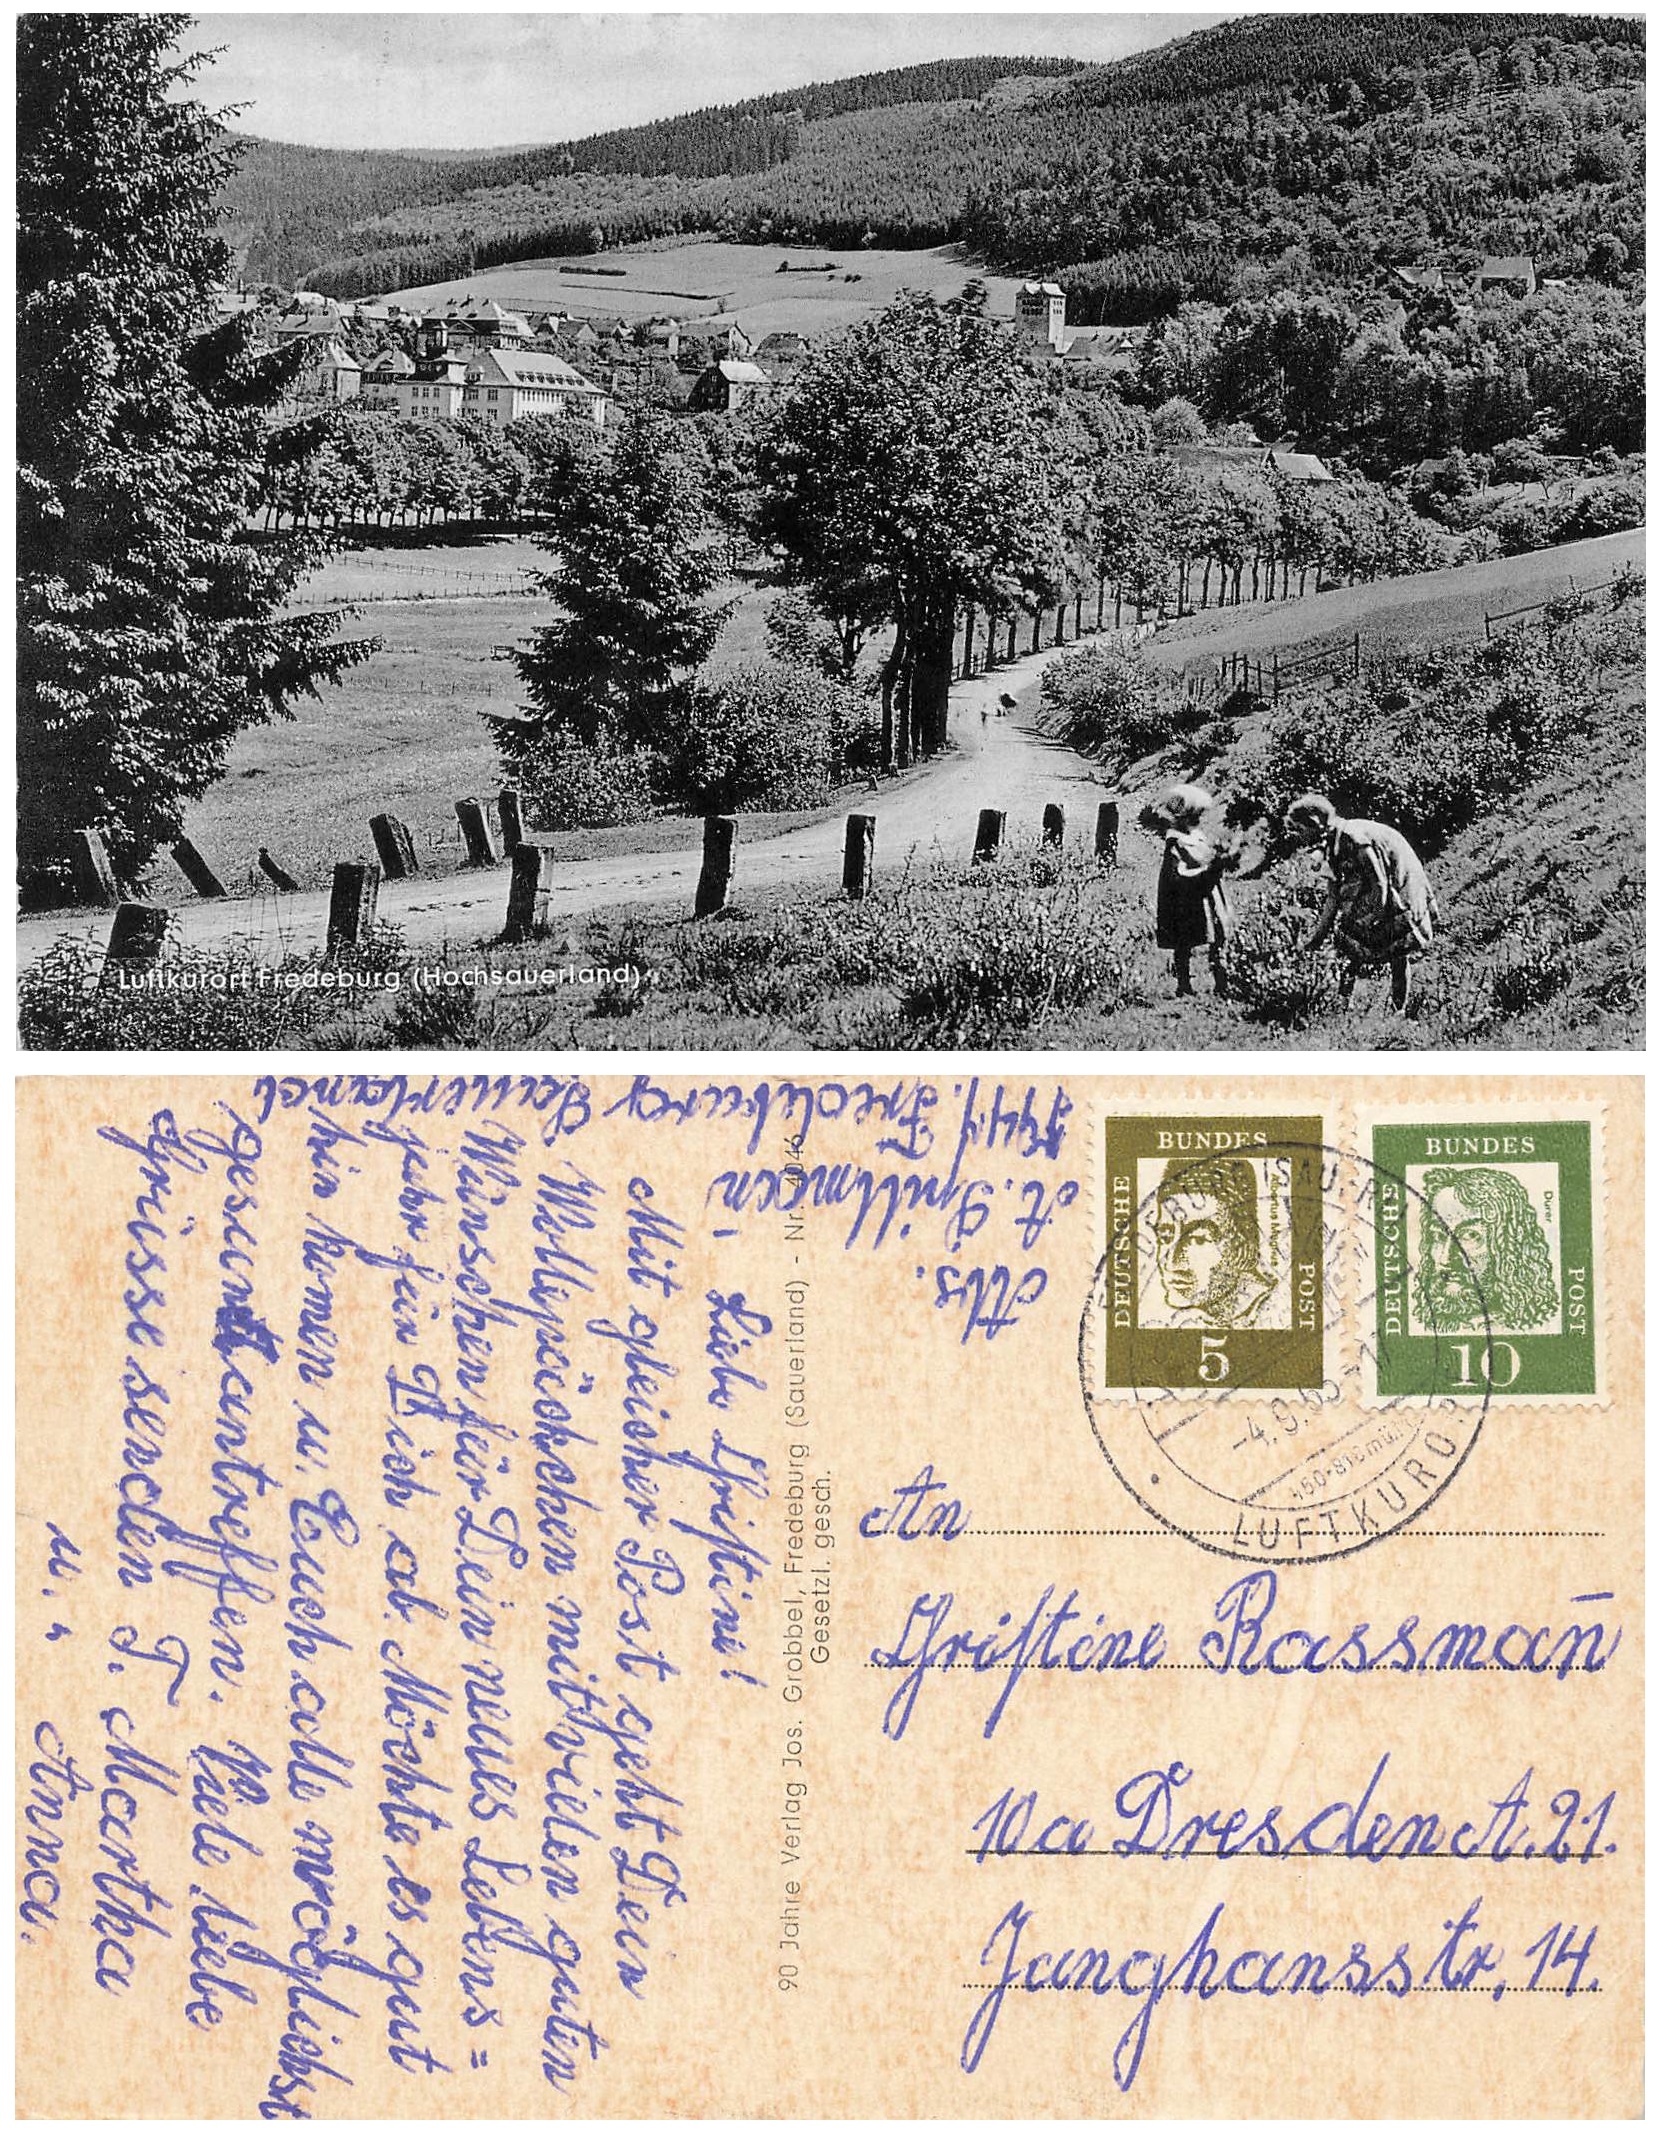 Luftkurort Fredeburg (Hochsauerland)
Abs.
A. Spillmann
Fredeburg
Sauerland
Liebe Christine!
Mit gleicher Post geht Dein
Wollepäckchen mit vielen guten
Wünschen für Dein neues Lebens =
jahr für Dich ab. Möchte es gut
hin komen u. Euch alle möglichst
gesund antreffen. Viele liebe
Grüsse senden T. Martha
u. " Anna.
90 Jahre Verlag Jos. Grobbel, Fredeburg (Sauerland) - Nr. 4046
Gesetzl. gesch.
DEUTSCHE BUNDES POST
Albertus Magnus
5
DEUTSCHE BUNDES POST
Dürer
10
FREDEBURG (SAUERL)
-4.9.63-17
450-818 m ü.M.
LUFTKURORT
An
Christine Rassmañ
10a Dresden A. 21.
Janghansstr. 14.